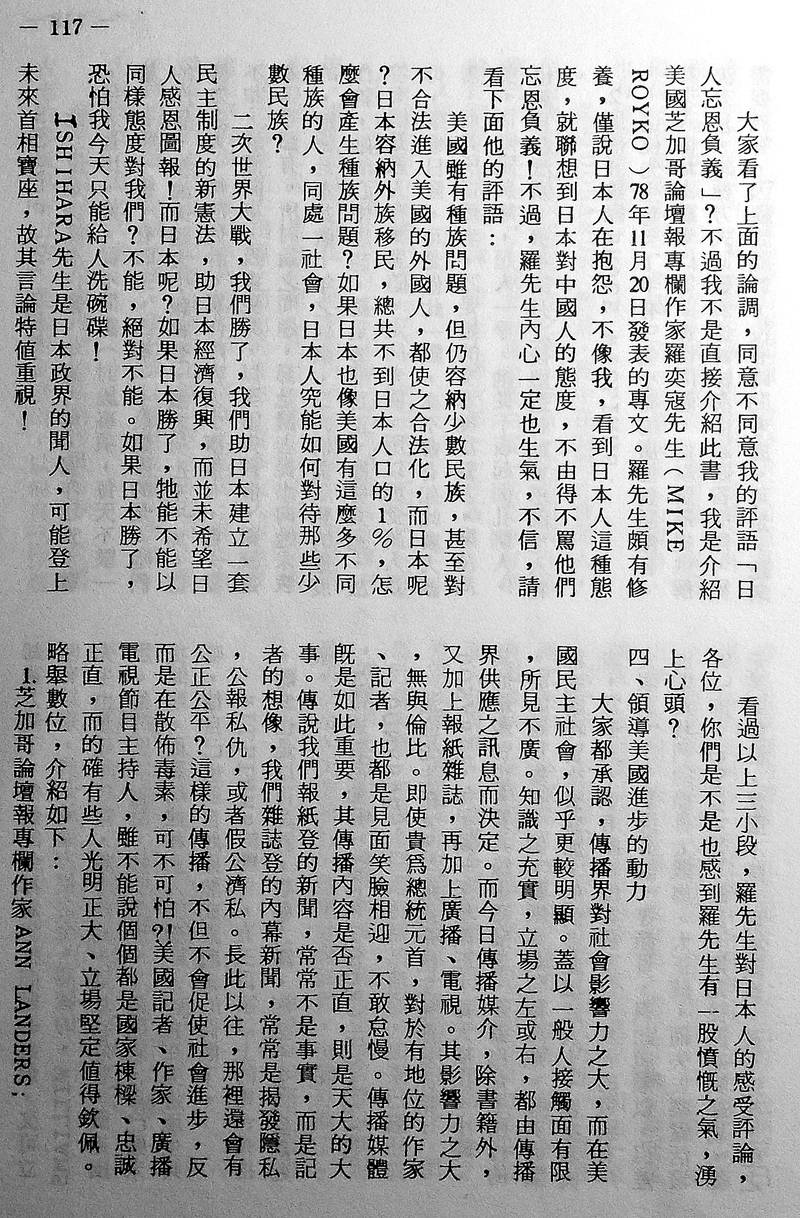 — 117 —
大家看了上面的論調，同意不同意我的評語「日
人忘恩負義」？不過我不是直接介紹此書，我是介紹
美國芝加哥論壇報專欄作家羅奕寇先生（MIKE
ROYKO）78年11月20日發表的專文。羅先生頗有修
養，僅說日本人在抱怨，不像我，看到日本人這種態
度，就聯想到日本對中國人的態度，不由得不罵他們
忘恩負義！不過，羅先生內心一定也生氣，不信，請
看下面他的評語：
美國雖有種族問題，但仍容納少數民族，甚至對
不合法進入美國的外國人，都使之合法化，而日本呢
？日本容納外族移民，總共不到日本人口的1%，怎
麼會產生種族問題？如果日本也像美國有這麼多不同
種族的人，同處一社會，日本人究能如何對待那些少
數民族？
二次世界大戰，我們勝了，我們助日本建立一套
民主制度的新憲法，助日本經濟復興，而並未希望日
人感恩圖報！而日本呢？如果日本勝了，牠能不能以
同樣態度對我們？不能，絕對不能。如果日本勝了，
恐怕我今天只能給人洗碗碟！
ISHIHARA先生是日本政界的聞人，可能登上
未來首相寶座，故其言論特值重視！
看過以上三小段，羅先生對日本人的感受評論，
各位，你們是不是也感到羅先生有一股憤慨之氣，湧
上心頭？
四、領導美國進步的動力
大家都承認，傳播界對社會影響力之大，而在美
國民主社會，似乎更較明顯。蓋以一般人接觸面有限
，所見不廣。知識之充實，立場之左或右，都由傳播
界供應之訊息而決定。而今日傳播媒介，除書籍外，
又加上報紙雜誌，再加上廣播、電視。其影響力之大
，無與倫比。即使貴爲總統元首，對於有地位的作家
、記者，也都是見面笑臉相迎，不敢怠慢。傳播媒體
旣是如此重要，其傳播內容是否正直，則是天大的大
事。傳說我們報紙登的新聞，常常不是事實，而是記
者的想像，我們雜誌登的內幕新聞，常常是揭發隱私
，公報私仇，或者假公濟私。長此以往，那裡還會有
公正公平？這樣的傳播，不但不會促使社會進步，反
而是在散佈毒素，可不可怕?!美國記者、作家、廣播
電視節目主持人，雖不能說個個都是國家棟樑、忠誠
正直，而的確有些人光明正大、立場堅定值得欽佩。
略舉數位，介紹如下：
1.芝加哥論壇報專欄作家ANN LANDERS；